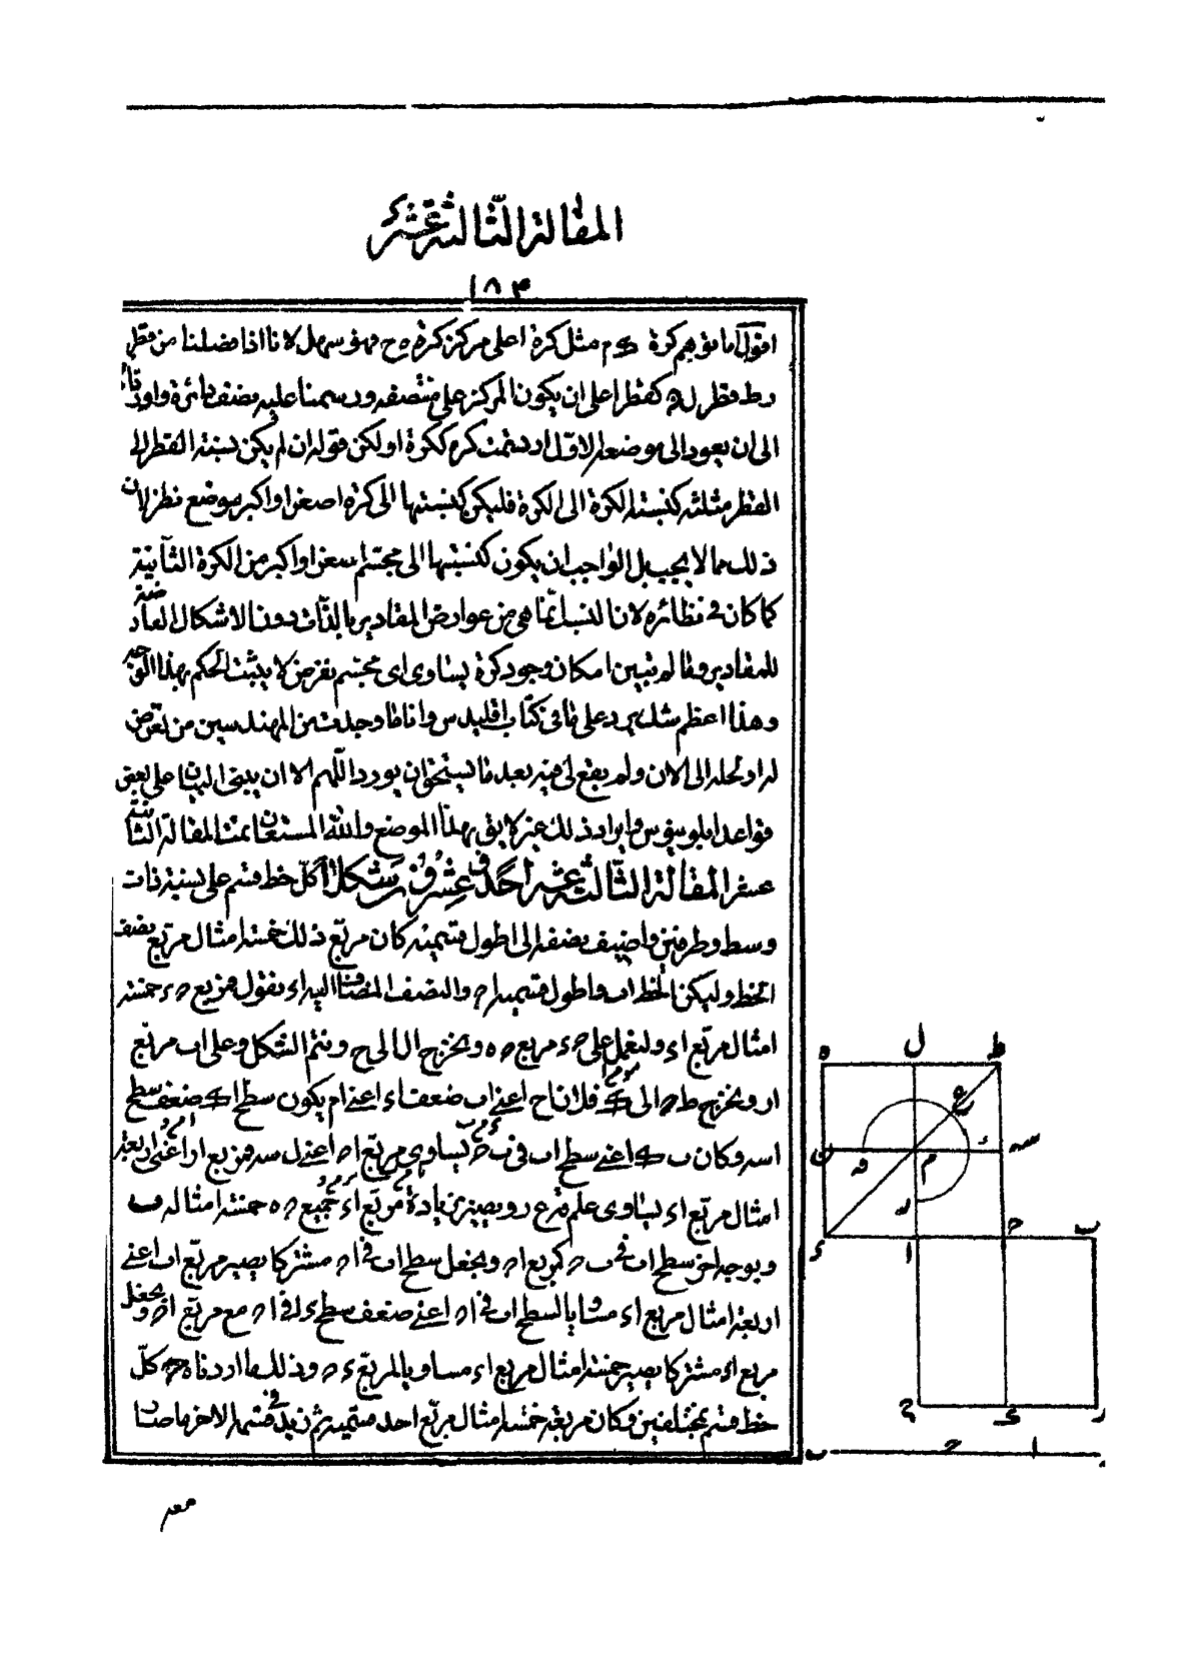 المقالة الثالثة عشر
١٨٣
اقول اما توهم كرة ك م مثل كرة اعلى مركز كرة ه ح فهو سهل لانا اذا فصلنا من قطر
الى ان يعود الى موضعه الاول ارتسمت كرة ككرة ا ولكن قوله ان لم يكن نسبة القطر الى
القطر مثلثه كنسبة الكرة الى الكرة فليكن كنسبتها الى كرة اصغر او اكبر موضع نظر لان
ذلك مما لا يجب بل الواجب ان يكون كنسبتها الى مجسم اصغر او اكبر من الكرة الثانية
كما كان في نظائره لان النسب انما هي من عوارض المقادير بالذات دون الاشكال العارضة
للمقادير وما لم تبين امكان وجود كرة يساوى اى مجسم يفرض لا يثبت الحكم بهذا الوجه
وهذا اعظم شك يرد على ما في كتاب اقليدس وانا ما وجدت من المهندسين من تعرض
له او لحله الى الان ولم يقع لى فيه بعد ما يستحق ان يورد اللهم الا ان يبنى البيان على بعض
قواعد ابلونيوس وايراد ذلك غير لايق بهذا الموضع والله المستعان تمت المقالة الثانية
عشر المقالة الثالثة عشر احد وعشرون شكلا ا كل خط قسم على نسبة ذات
وسط وطرفين واضيف نصفه الى اطول قسميه كان مربع ذلك خمسة امثال مربع نصف
الخط وليكن الخط اب واطول قسميه اح والنصف المضاف اليه اء نقول فمربع ح ء خمسة
امثال مربع اء ولنعمل على ح ء مربع ح ه ونخرج ال الى ح ونتم الشكل وعلى اب مربع
ار ونخرج ط ح الى ك فلان اح اعنى اب ضعف اء اعنى ام يكون سطح اك ضعف سطح
اس وكان ب ك اعنى سطح اب فى ب ح يساوى مربع اح اعنى ل س فمربع ار اعنى اربعة
امثال مربع اء يساوى علم
وبوجه اخر سطح اب فى ب ح كمربع اح ونجعل سطح اب فى اح مشتركا يصير مربع اب اعنى
اربعة امثال مربع اء مساويا لسطح اب فى اح اعنى ضعف سطح ء ا فى اح مع مربع اح ونجعل
مربع اء مشتركا يصير خمسة امثال مربع اء مساويا لمربع ء ح وذلك ما اردناه ب كل
خط قسم بمختلفين وكان مربعه خمسة امثال مربع احد قسميه ثم زيد فى قسمه الاخر ما صار
ه ل ط
ع
ن ف م س
ء ا ح ب
ح ك ر
ب ح ا